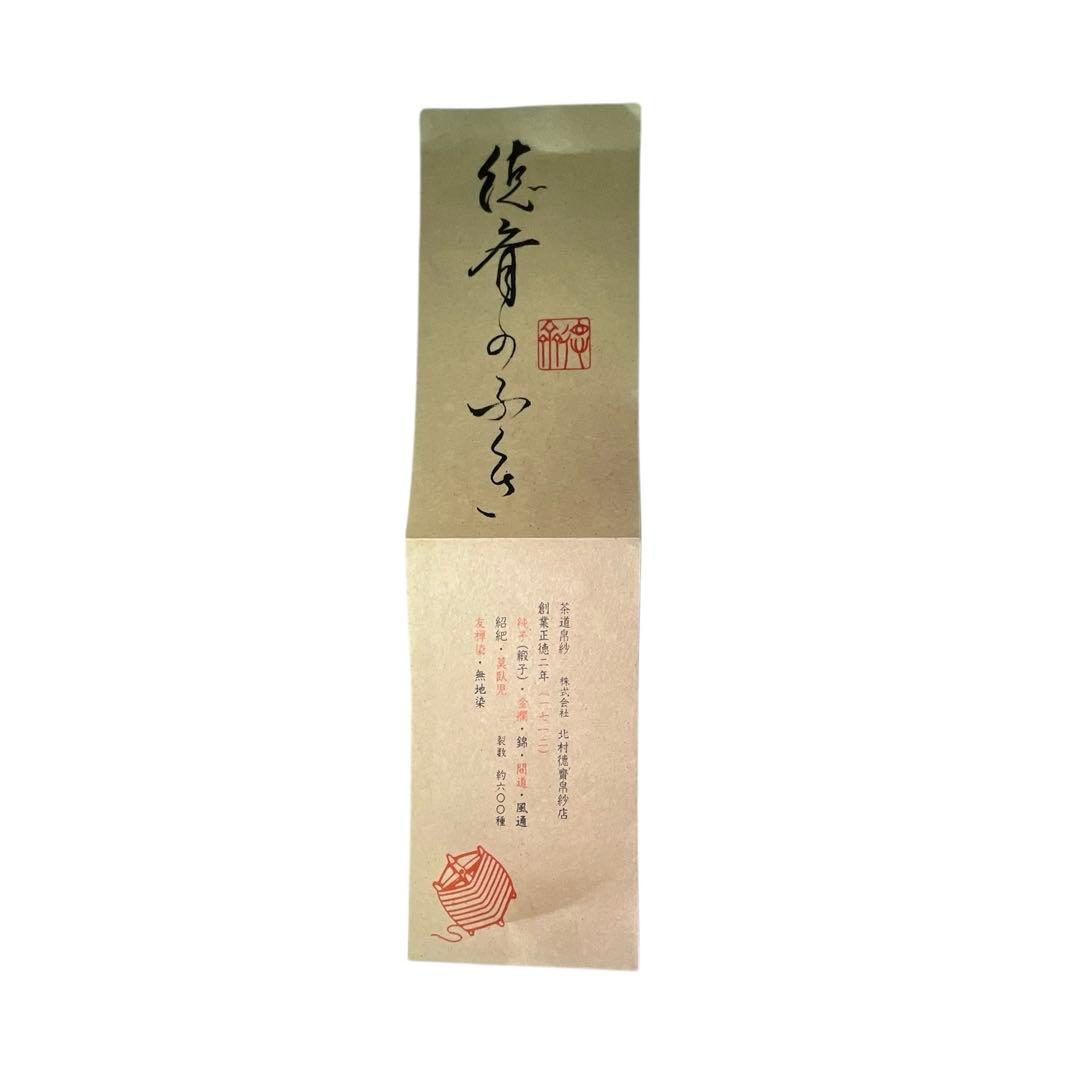 徳斎のふくさ
徳斎
茶道帛紗　株式会社　北村徳齋帛紗店
創業正徳二年（一七一二）
純子（緞子）・金襴・錦・間道・風通
紹紦・莫臥児　裂数　約六〇〇種
友禅染・無地染